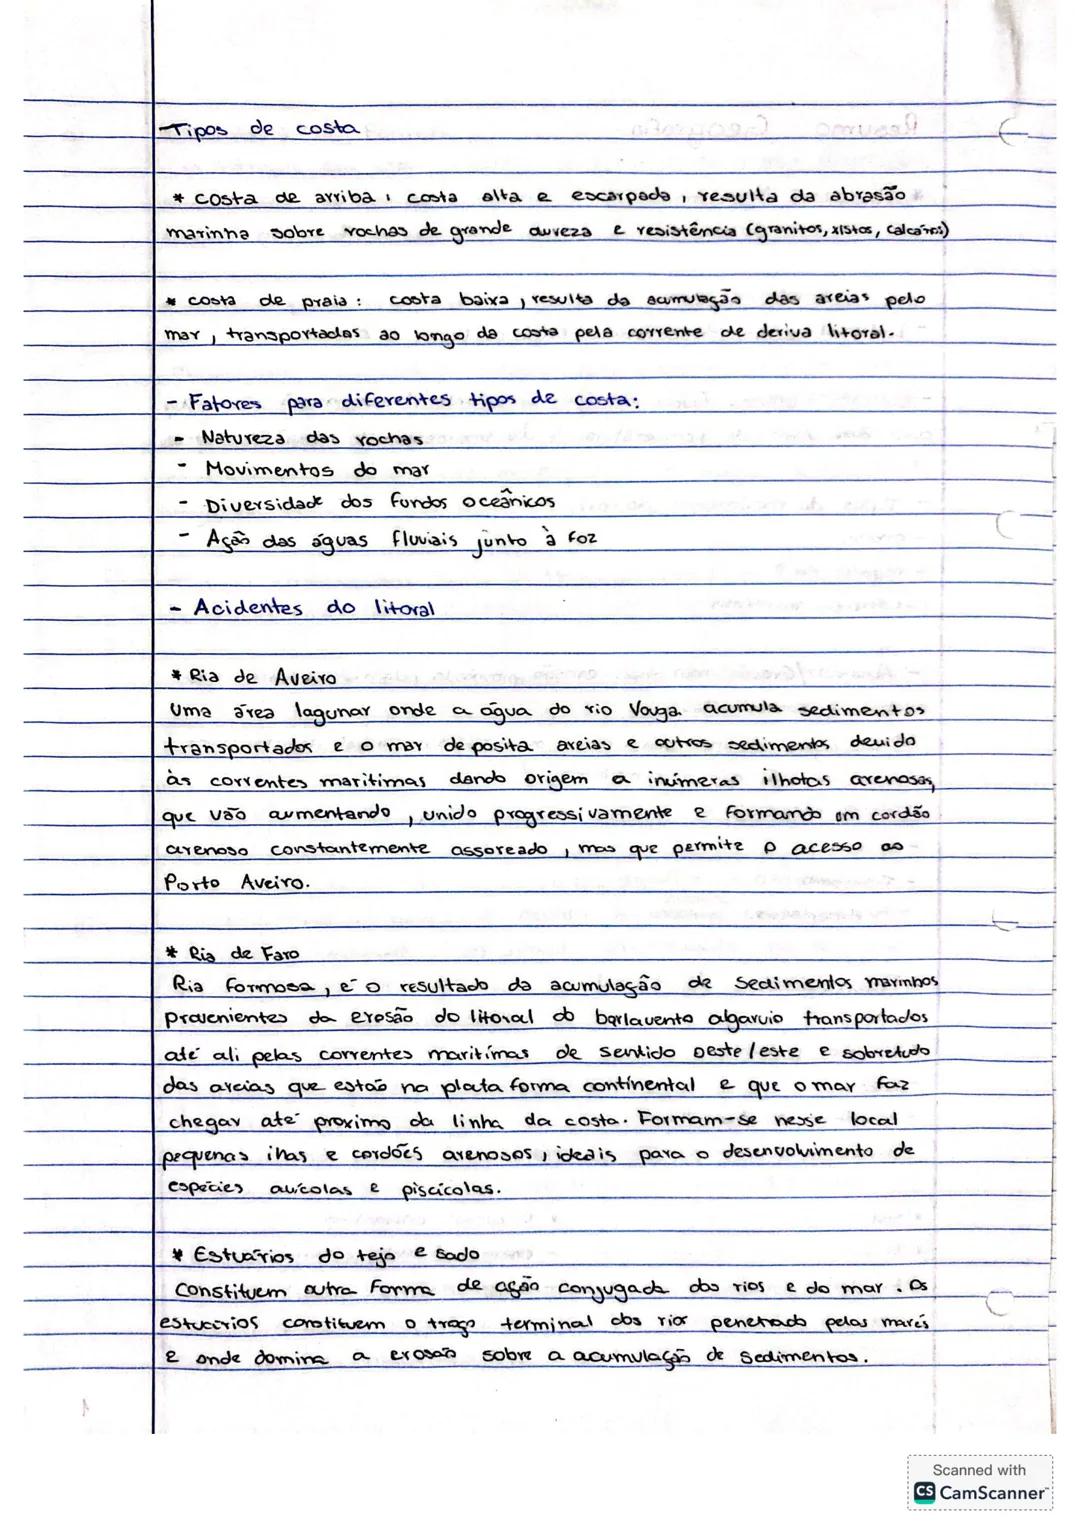 Tipos de costa
* costa de arriba : costa alta e escarpada , resulta da abrasão
marinha sobre rochas de grande dureza e resistência (granitos, xistos, calcários)
* costa de praia : costa baixa , resulta da acumulação das areias pelo
mar , transportadas ao longo da costa pela corrente de deriva litoral.
- Fatores para diferentes tipos de costa:
- Natureza das rochas
- Movimentos do mar
- Diversidade dos fundos oceânicos
- Ação das águas fluviais junto à foz
- Acidentes do litoral
* Ria de Aveiro
Uma área lagunar onde a água do rio Vouga acumula sedimentos
transportados e o mar deposita areias e outros sedimentos devido
às correntes maritimas dando origem a inúmeras ilhotas arenosas,
que vão aumentando , unido progressivamente e formando um cordão
arenoso constantemente assoreado , mas que permite o acesso ao
Porto Aveiro.
* Ria de Faro
Ria Formosa , é o resultado da acumulação de sedimentos marinhos
provenientes da erosão do litoral do barlavento algarvio transportados
até ali pelas correntes maritímas de sentido oeste/este e sobretudo
das areias que estão na plataforma continental e que o mar faz
chegar até proximo da linha da costa. Formam-se nesse local
pequenas ilhas e cordões arenosos , ideais para o desenvolvimento de
espécies avícolas e piscícolas.
* Estuários do tejo e sado
Constituem outra forma de ação conjugada dos rios e do mar . Os
estuários constituem o troço terminal dos rios penetrado pelas marés
e onde domina a erosão sobre a acumulação de sedimentos.
1
Scanned with
CS CamScanner